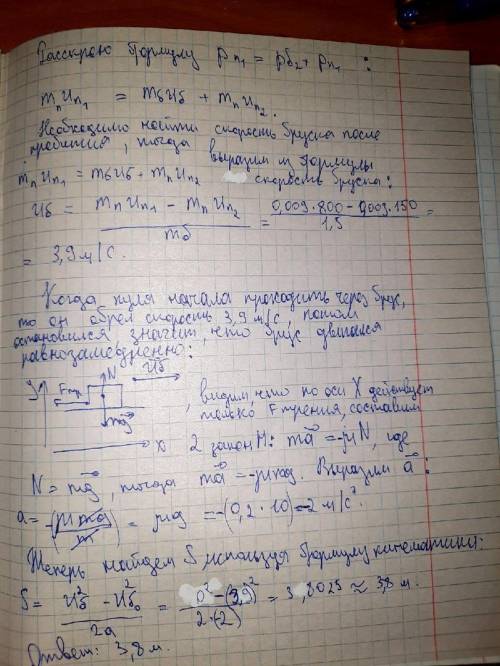 Расскрою формулу pп₁ = pб₂ + pп₁ :
mпUп₁ = mбUб + mпUп₂.
Необходимо найти скорость бруска после
пробития, тогда выразим из формулы
mпUп₁ = mбUб + mпUп₂ скорость бруска:
Uб = (mпUп₁ − mпUп₂)/mб = (0,009·800 − 0,009·150)/1,5 =
= 3,9 м/с.
Когда пуля начала проходить через брус,
то он обрел скорость 3,9 м/с, потом
остановился значит, что брус двигался
равнозамедленно:
y Fтр. N Uб mg x
, видим что по оси X действует
только F трения, составим
2 закон Н: ma = -μN, где
N = mg, тогда ma = -μmg. Выразим a :
a = -(μmg/m) = μg = -(0,2·10) = -2 м/с².
Теперь найдем S используя формулу кинематики:
S = (Uб² − Uб₀²)/2a = (0² − (3,9)²)/2·(-2) = 3,8025 ≈ 3,8 м.
Ответ: 3,8 м.